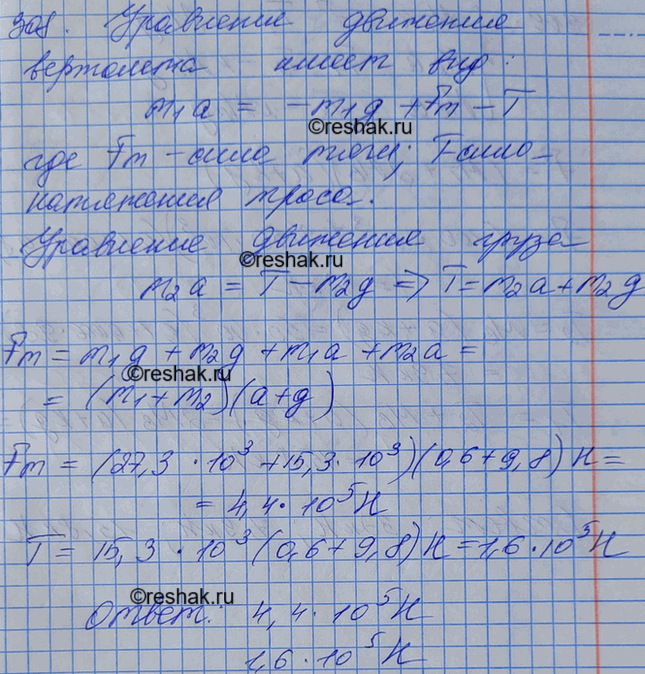 308. Уравнение движения
вертолета имеет вид:
m₁a = -m₁g + Fт - T
©reshak.ru
где Fт - сила тяги; T сила
натяжения троса.
Уравнение движения груза
©reshak.ru
m₂a = T - m₂g => T = m₂a + m₂g
Fт = m₁g + m₂g + m₁a + m₂a =
©reshak.ru
= (m₁ + m₂)(a + g)
Fт = (27,3 · 10³ + 15,3 · 10³)(0,6 + 9,8) Н =
= 4,4 · 10⁵ Н
T = 15,3 · 10³ (0,6 + 9,8) Н = 1,6 · 10⁵ Н
©reshak.ru
Ответ: 4,4 · 10⁵ Н
1,6 · 10⁵ Н